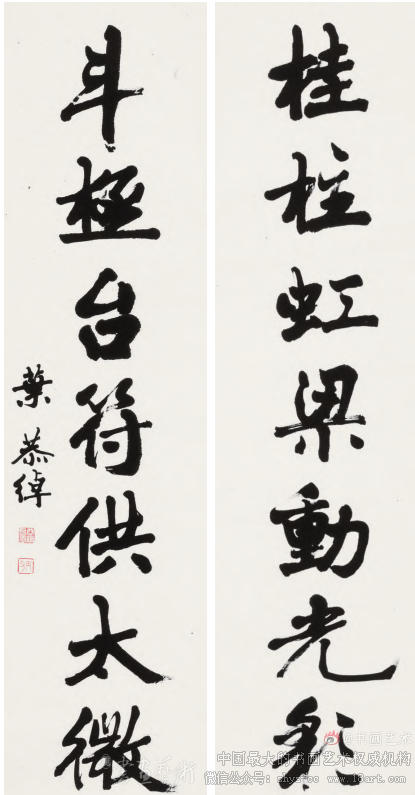 桂柱虹梁動光彩
斗極台符供太微
葉恭綽
@书画艺术
中国最大的书画艺术权威机构
微信公众号:shysfcc www.18art.com